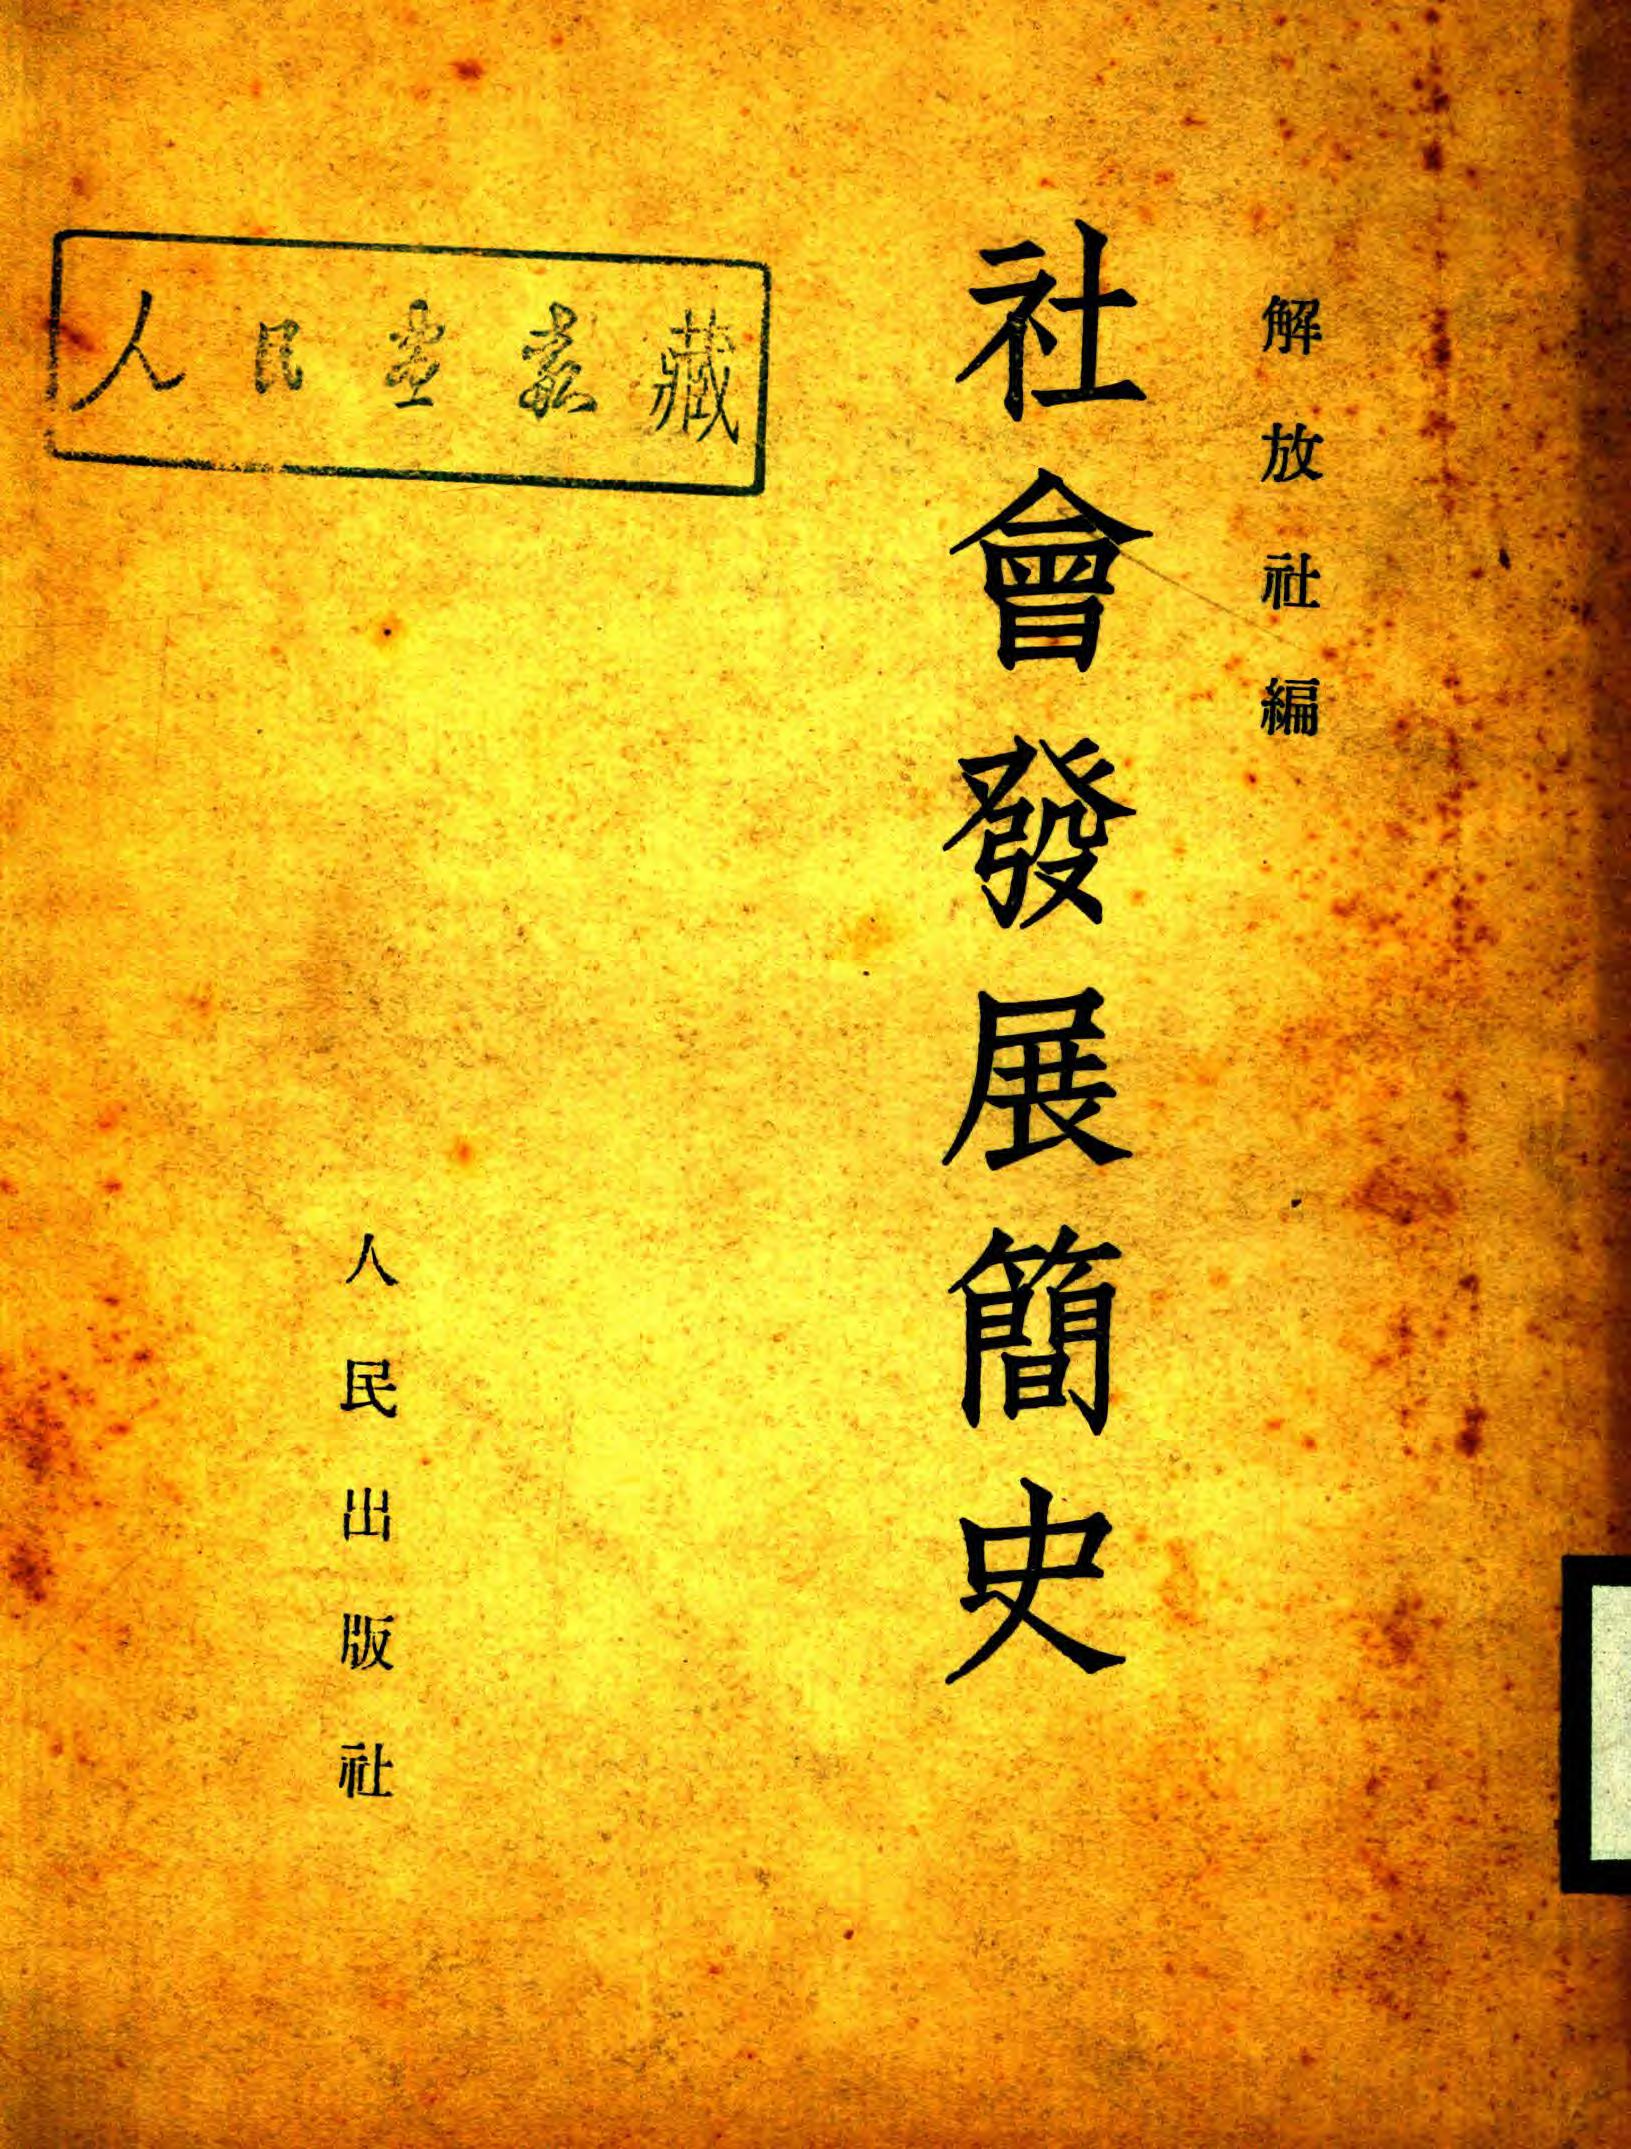 解放社編
社會發展簡史
人民出版社
人民
藏